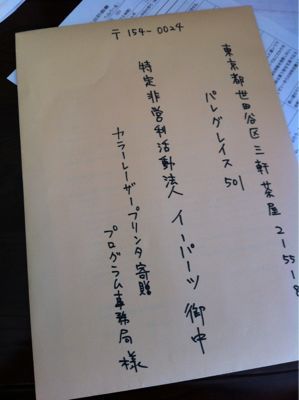 〒154-0024
東京都世田谷区三軒茶屋2-55-8
パレグレイス501
特定非営利活動法人 イーパーツ 御中
カラーレーザープリンタ寄贈
プログラム事務局 様